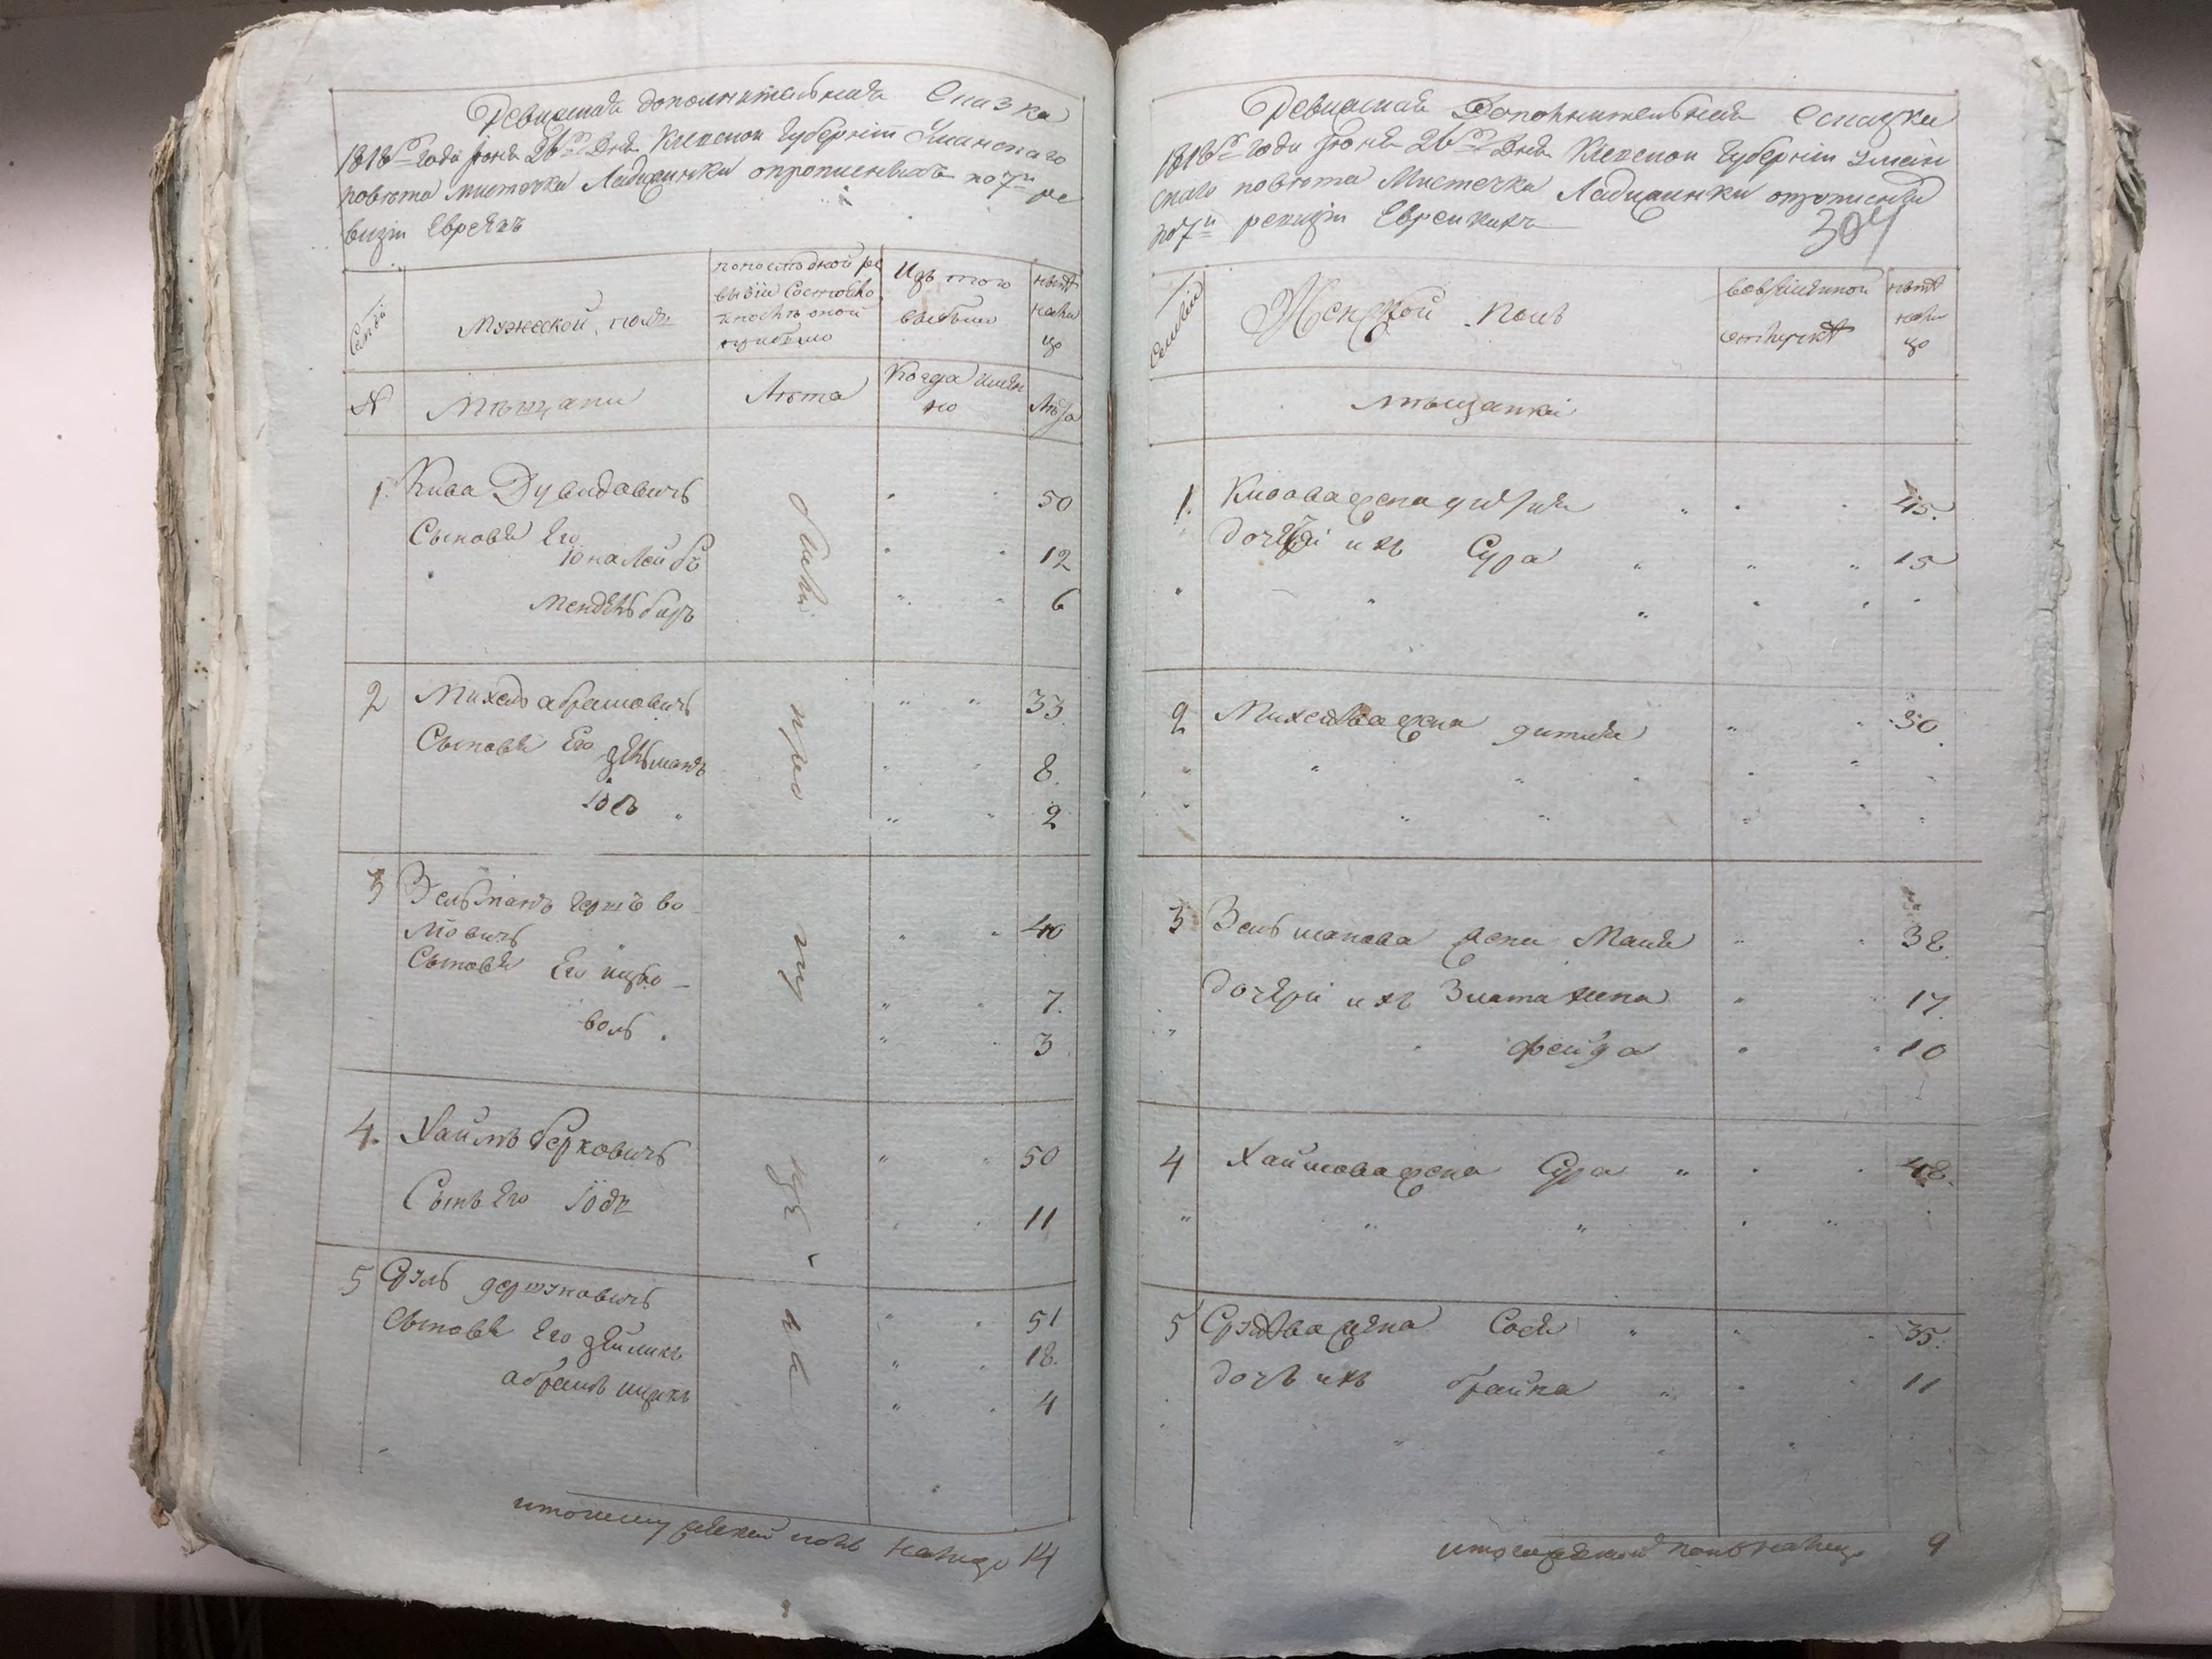 Ревизская дополнительная Сказка
1818го года Іюня 26го Дня Кіевской Губерніи Уманскаго
повѣта мистечка Ладижинки опрописныхъ по 7й ре
визіи Евреяхъ
Семьи
Мужеской полъ
По последной ре
визіи Состояло
и послѣ оной
прибыло
Изъ того
выбыло
нынѣ
нали
цо
№
Мѣщани
Лѣта
Когда имен
но
Лѣта
1. Кива Дувидовичъ 50
Сыновя Его
Іона Лейба 12
Мендель 6
были
2 Михель абрамовичъ 33
Сыновя Его Зельманъ 8.
Іось 2
про
3 Зельманъ Герш во
льовичъ 40
Сыновя Его Ицко 7.
воль 3
пу
4. Хаимъ берковичъ 50
Сынъ Его Іось 11
5 Срэль Гершковичъ 51
Сыновя Его Зейликъ 18.
абрамъ ицикъ 4
итого мужеской полъ налицо 14
Ревизская Дополнительная Сказка
1818го года Іюня 26го Дня Кіевской Губерніи Уман
скаго повѣта Мистечка Ладижинки опрописных
по 7й ревизіи Еврейкахъ
304
Семьи
Женской полъ
во временной
отлучкѣ
нынѣ
нали
цо
мѣщанки
1. Кивова жена 45.
дочери ихъ Сура 15
2 Михелева жена 30
3 Зельманова жена Маня 38.
дочери ихъ Злата хина 17.
фейга 10
4 Хаимова жена Сура 48.
5 Срэлева жена Сося 35.
дочь ихъ брайна 11
итого женской полъ налицо 9